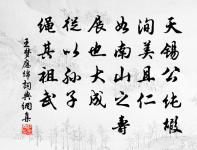 天锡公纯嘏
洵美且仁
如南山之壽
展也大成
从以孙子
绳其祖武